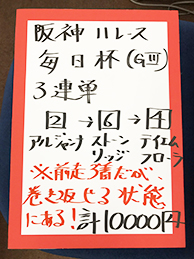 阪神11レース
毎日杯(GⅢ)
3連単
2→6→4
アルジャンナ ストーンリッジ テイエムフローラ
※前走3着だが、
巻き返せる状態
にある!計10000円